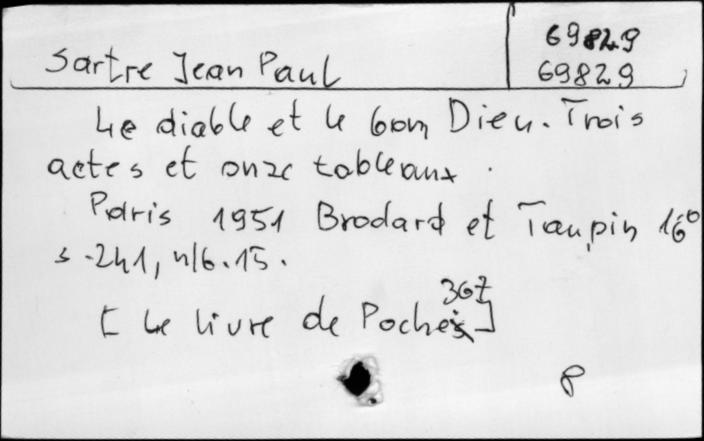 69829
Sartre Jean Paul 69829
Le diable et le bon Dieu. Trois
actes et onze tableaux.
Paris 1951 Brodard et Taupin 16°
s. 241, nlb. 15.
367
[Le livre de Poche]
8